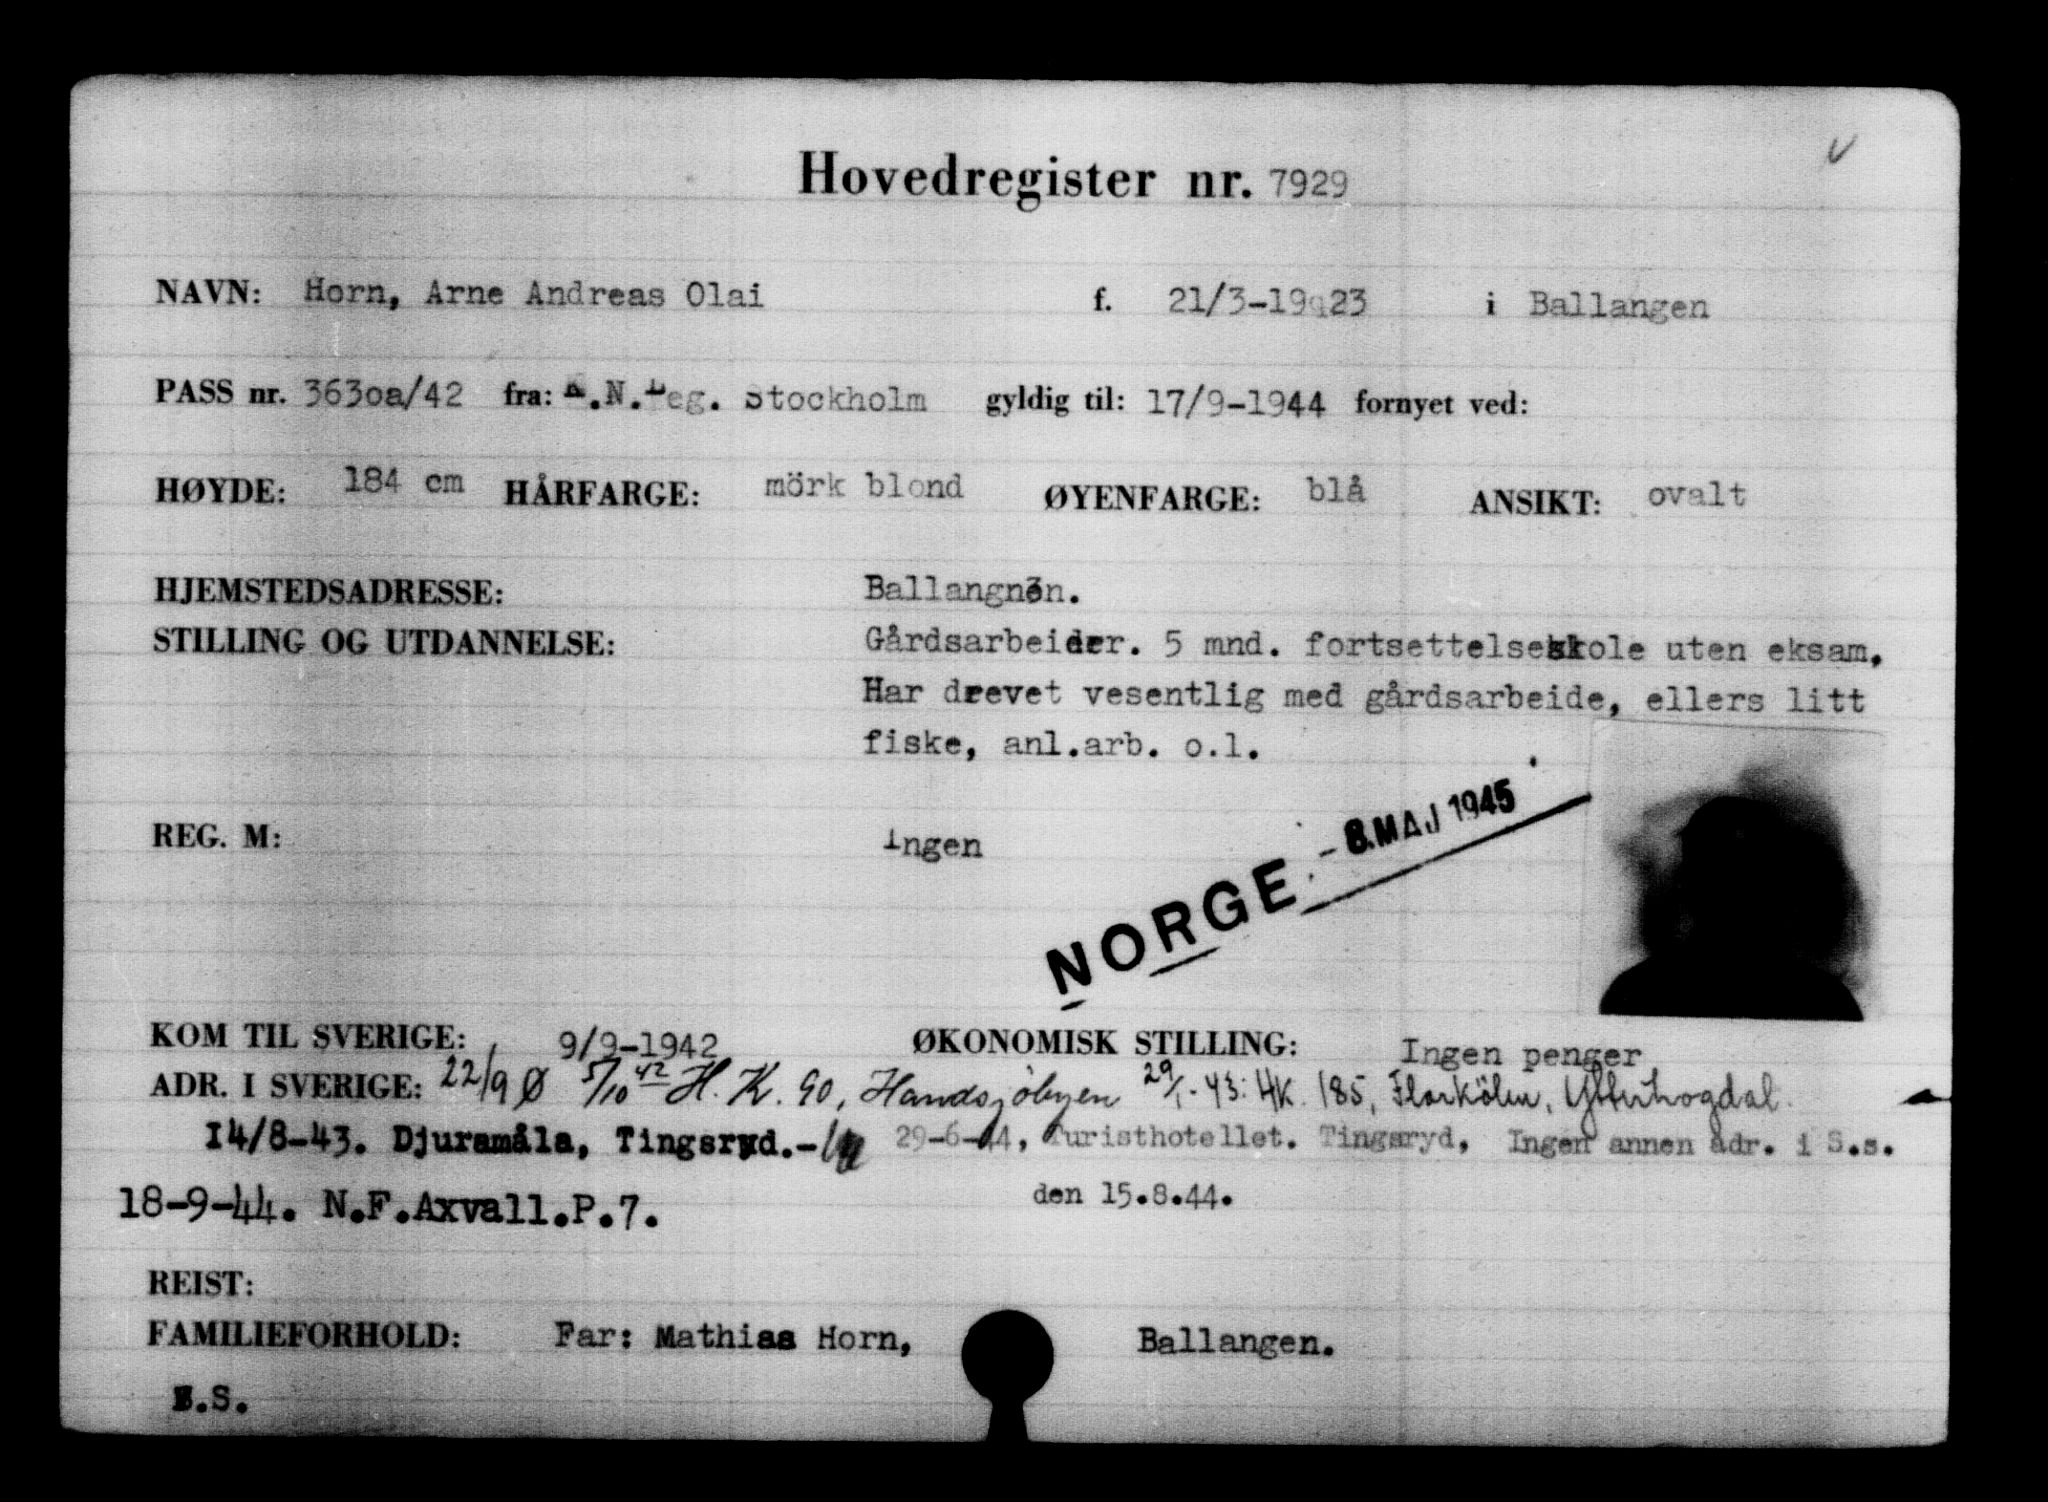 Hovedregister nr. 7929
NAVN: Horn, Arne Andreas Olai f. 21/3-1923 i Ballangen
PASS nr. 3630a/42 fra: K.N.Leg. Stockholm gyldig til: 17/9-1944 fornyet ved:
HØYDE: 184 cm HÅRFARGE: mörk blond ØYENFARGE: blå ANSIKT: ovalt
HJEMSTEDSADRESSE: Ballangnen.
STILLING OG UTDANNELSE: Gårdsarbeider. 5 mnd. fortsettelseskole uten eksam.
Har drevet vesentlig med gårdsarbeide, ellers litt
fiske, anl.arb. o.l.
REG. M: Ingen
NORGE - 8. MAJ 1945
KOM TIL SVERIGE: 9/9-1942 ØKONOMISK STILLING: Ingen penger
ADR. I SVERIGE: 22/9 Ø 5/10 42 H.K. 90, Handsjöbyen 29/1-43: HK. 185, Florkölen, Ytterhogdal.
14/8-43. Djuramåla, Tingsryd.- 29-6-44, Turisthotellet. Tingsryd, Ingen annen adr. i S.s.
den 15.8.44.
18-9-44. N.F.Axvall.P.7.
REIST:
FAMILIEFORHOLD: Far: Mathias Horn, Ballangen.
E.S.